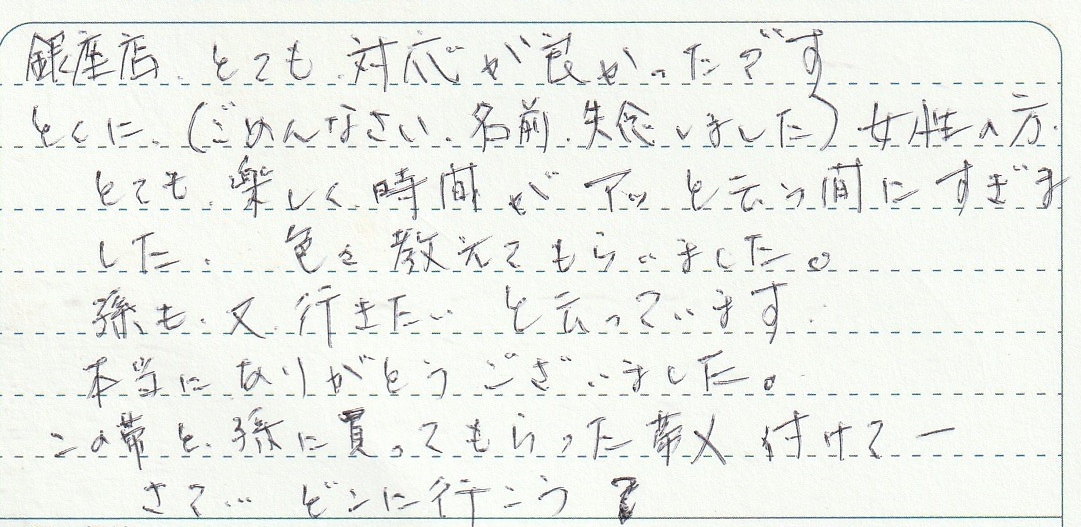 銀座店、とても対応が良かったです
とくに、(ごめんなさい、名前、失念しました)女性の方、
とても、楽しく、時間がアッと云う間にすぎま
した。 色々教えてもらいました。
孫も、又、行きたい と云っています。
本当にありがとうございました。
この帯と、孫に買ってもらった帯〆付けてー
さて… どこに行こう?